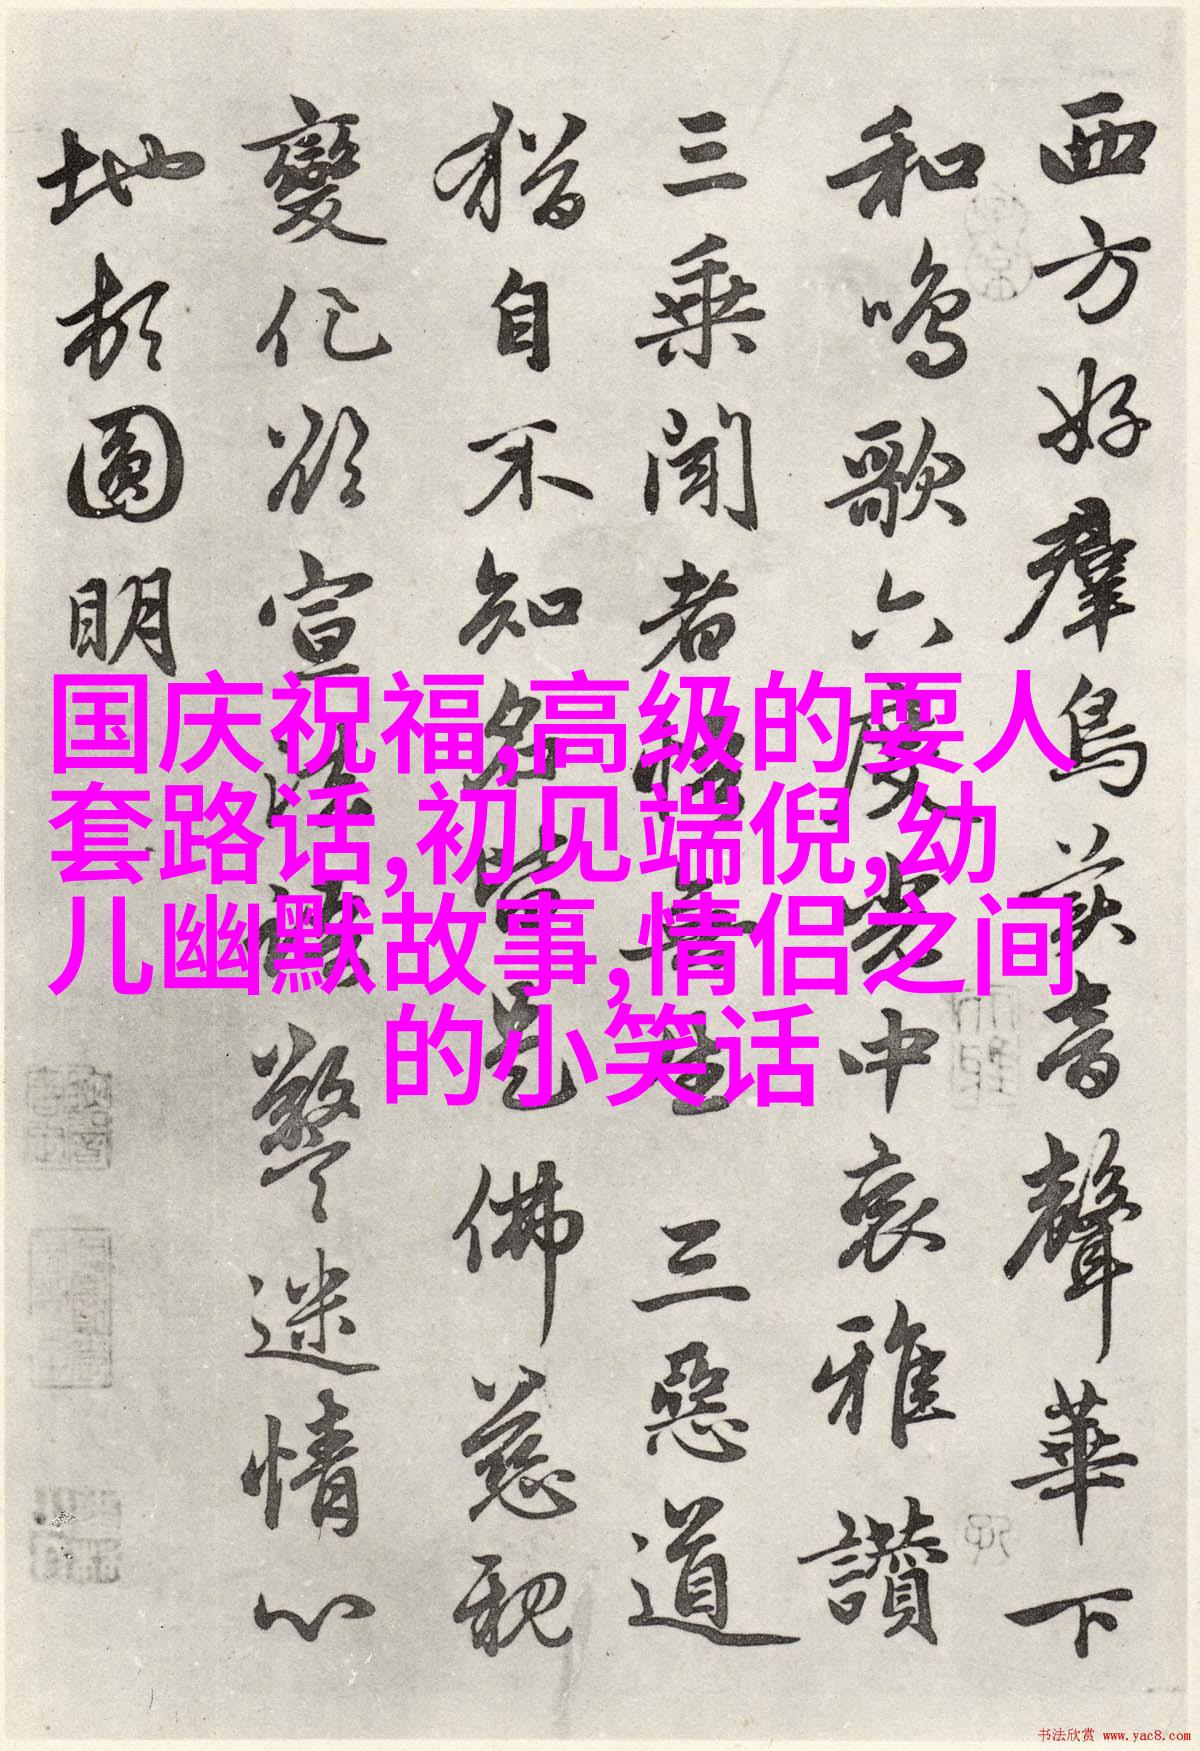 西方好羣鳥美音聲華下
和鳴歌六度光中哀雅讚
三乘聞者悟無生三惡道
猶自不知名皆是佛慈親
變化欲宣法語警迷情心
地頓圓明
国庆祝福,高级的耍人
套路话,初见端倪,幼
儿幽默故事,情侣之间
的小笑话
书法欣赏 www.yac8.com